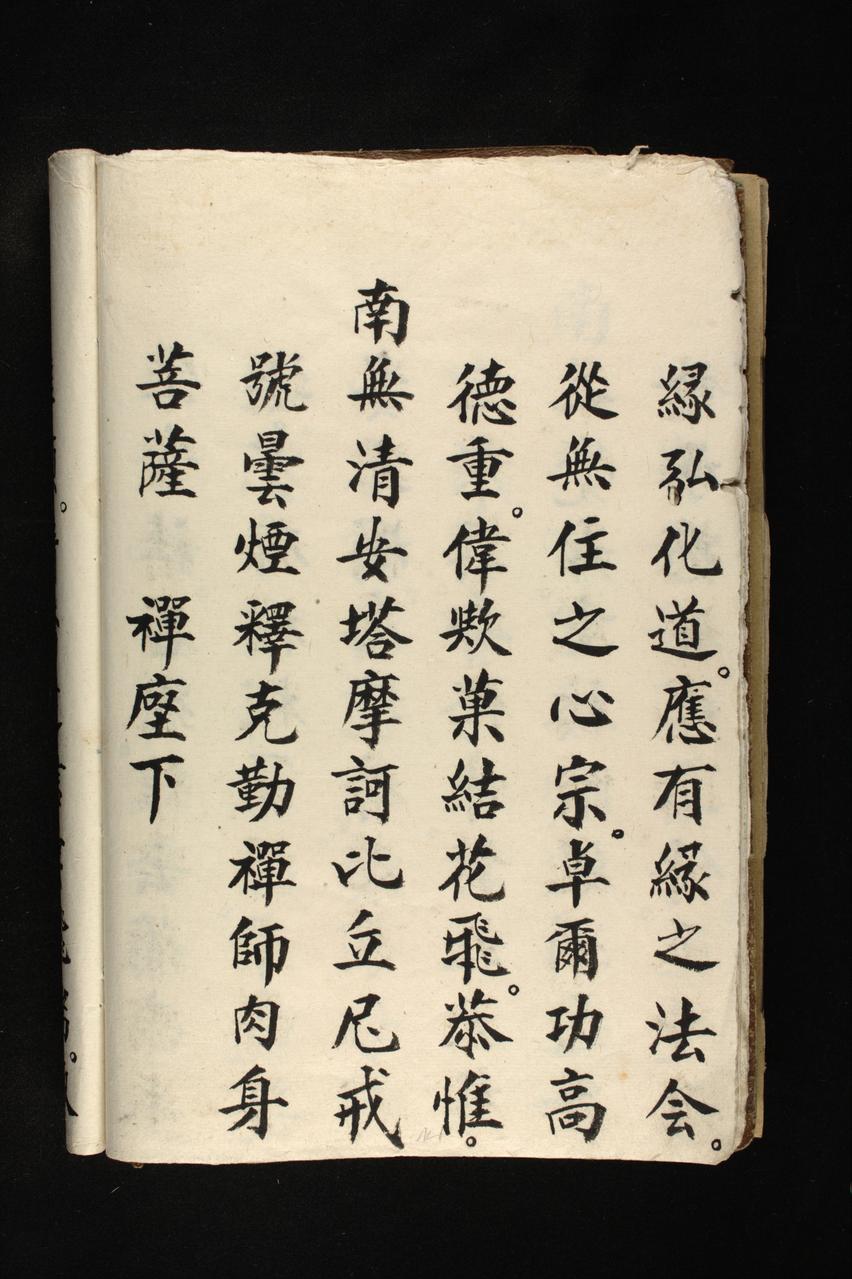 緣弘化道。應有緣之法会。
從無住之心宗。卓爾功高
德重。偉欤菓結花飛。恭惟。
南無清安塔摩訶比丘尼戒
號曇煙釋克勤禪師肉身
菩薩　禪座下